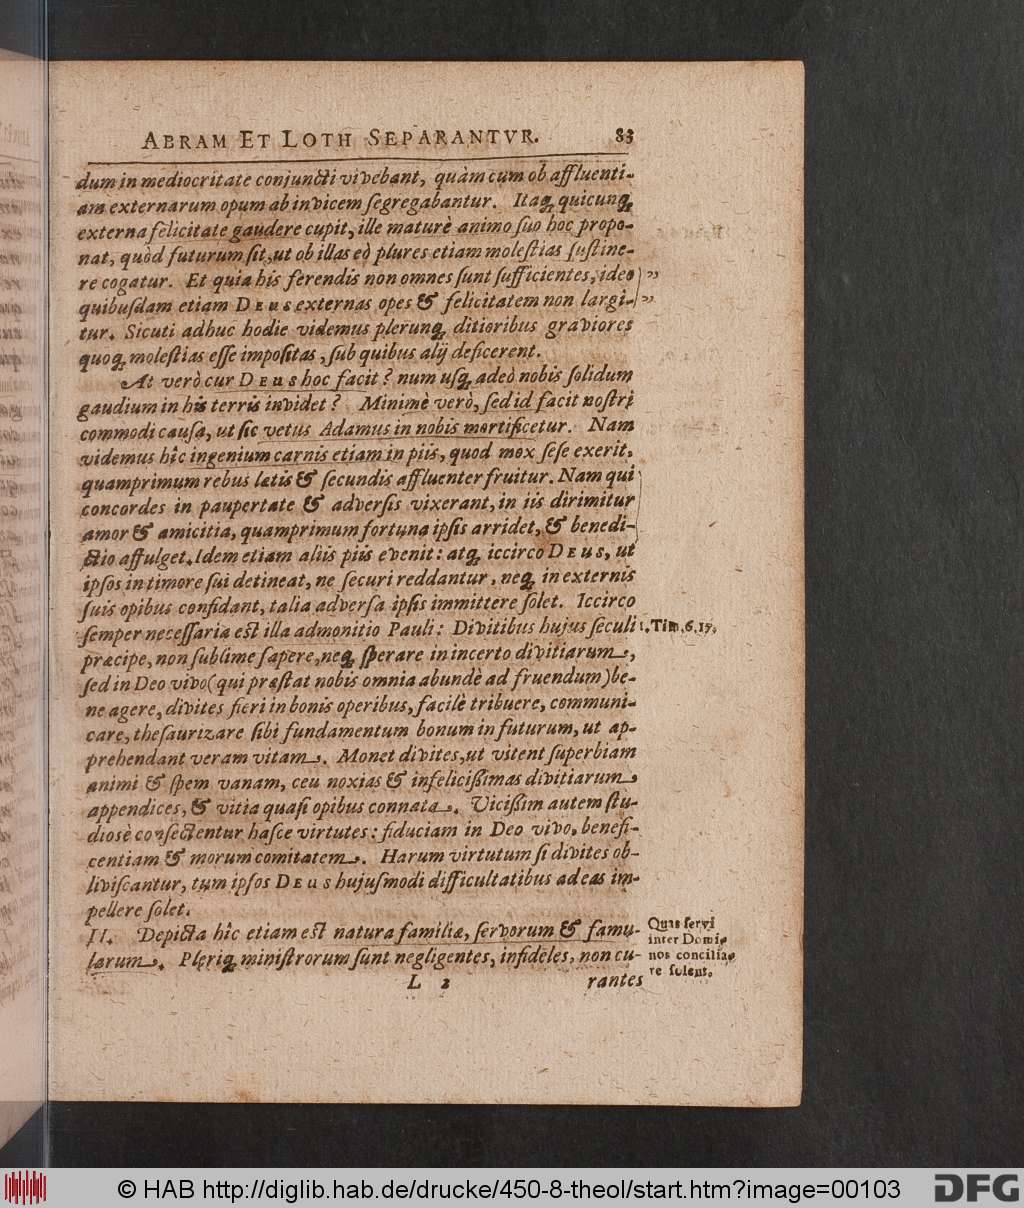 ABRAM ET LOTH SEPARANTVR. 83
dum in mediocritate conjuncti vivebant, quàm cum ob affluenti-
am externarum opum ab invicem ſegregabantur. Itaq́ quicunq́
externa felicitate gaudere cupit, ille maturè animo ſuo hoc propo-
nat, quòd futurum ſit, ut ob illas eò plures etiam moleſtias ſuſtine-
re cogatur. Et quia his ferendis non omnes ſunt ſufficientes, ideo ”
quibuſdam etiam DEUS externas opes & felicitatem non largi- ”
tur. Sicuti adhuc hodie videmus plerunq́ ditioribus graviores
quoq́ moleſtias eſſe impoſitas, ſub quibus alij deficerent.
At verò cur DEUS hoc facit? num uſq́ adeò nobis ſolidum
gaudium in his terris invidet? Minimè verò, ſed id facit noſtri
commodi cauſa, ut ſic vetus Adamus in nobis mortificetur. Nam
videmus hîc ingenium carnis etiam in piis, quod mox ſeſe exerit,
quamprimum rebus lætis & ſecundis affluenter fruitur. Nam qui
concordes in paupertate & adverſis vixerant, in iis dirimitur
amor & amicitia, quamprimum fortuna ipſis arridet, & benedi-
ctio affulget. Idem etiam aliis piis evenit: atq́ iccirco DEUS, ut
ipſos in timore ſui detineat, ne ſecuri reddantur, neq́ in externis
ſuis opibus confidant, talia adverſa ipſis immittere ſolet. Iccirco
ſemper neceſſaria eſt illa admonitio Pauli: Divitibus hujus ſeculi 1. Tim. 6. 17.
præcipe, non ſublime ſapere, neq́ ſperare in incerto divitiarum,
ſed in Deo vivo (qui præſtat nobis omnia abundè ad fruendum) be-
ne agere, divites fieri in bonis operibus, facilè tribuere, communi-
care, theſaurizare ſibi fundamentum bonum in futurum, ut ap-
prehendant veram vitam. Monet divites, ut vitent ſuperbiam
animi & ſpem vanam, ceu noxias & infeliciſſimas divitiarum
appendices, & vitia quaſi opibus connata. Viciſſim autem ſtu-
dioſè conſectentur haſce virtutes: fiduciam in Deo vivo, benefi-
centiam & morum comitatem. Harum virtutum ſi divites ob-
liviſcantur, tum ipſos DEUS hujuſmodi difficultatibus ad eas im-
pellere ſolet.
II. Depicta hîc etiam eſt natura familiæ, ſervorum & famu-
larum. Pleriq́ miniſtrorum ſunt negligentes, infideles, non cu-
Quas ſervi
inter Domi-
nos concilia-
re ſolent.
L 2 rantes
© HAB http://diglib.hab.de/drucke/450-8-theol/start.htm?image=00103 DFG